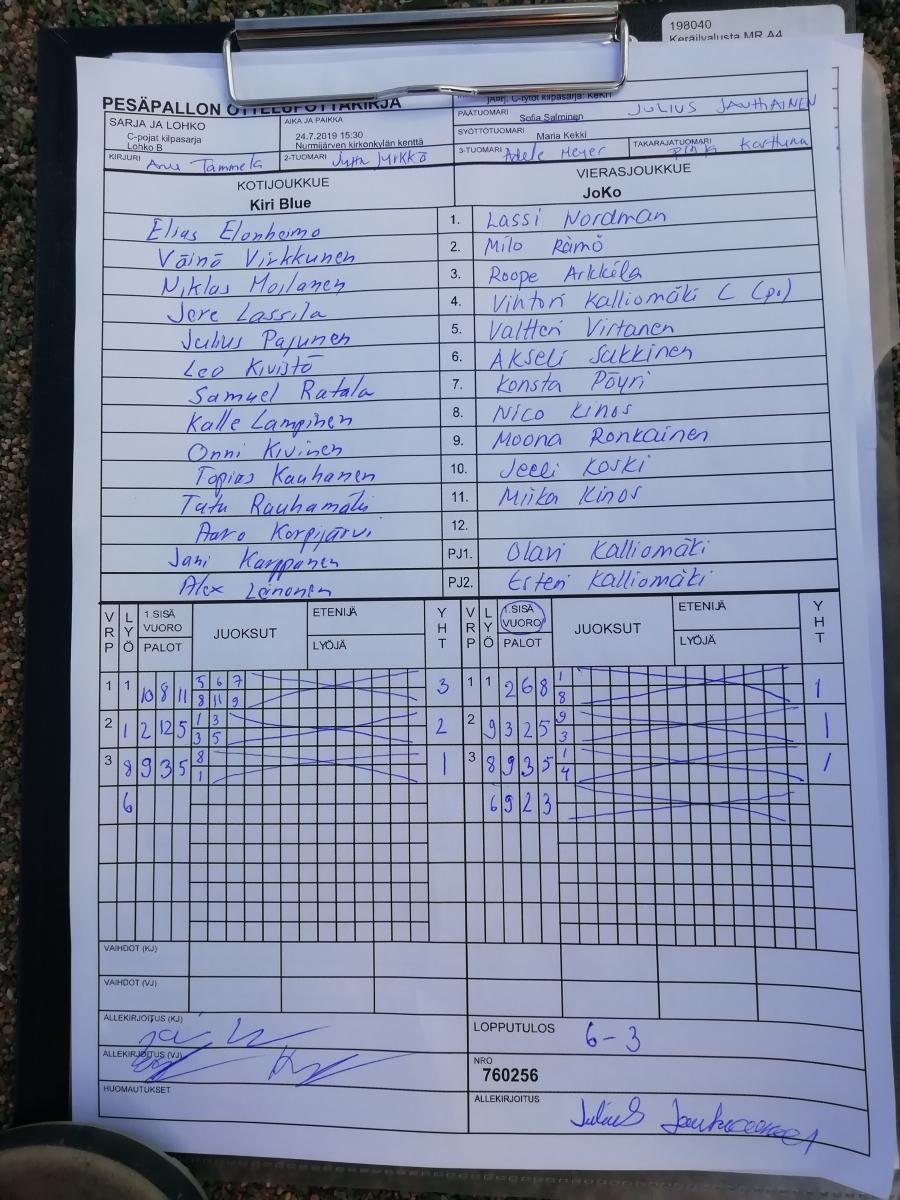 198040
Keräilyalusta MR A4
PESÄPALLON OTTELUPÖYTÄKIRJA
SARJA JA LOHKO
C-pojat kilpasarja
Lohko B
AIKA JA PAIKKA
24.7.2019 15:30
Nurmijärven kirkonkylän kenttä
PÄÄTUOMARI
Sofia Salminen JULIUS JAUHIAINEN
SYÖTTÖTUOMARI
Maria Kekki
KIRJURI Anu Tammela
2-TUOMARI Jytta Jyrkkö
3-TUOMARI Adele Meyer
TAKARAJATUOMARI Pinja Karttunen
KOTIJOUKKUE
Kiri Blue
VIERASJOUKKUE
JoKo
Elias Elonheimo 1. Lassi Nordman
Väinö Virkkunen 2. Milo Rämö
Niklas Moilanen 3. Roope Arkkila
Jere Lassila 4. Vihtori Kalliomäki C (pj)
Julius Pajunen 5. Valtteri Virtanen
Leo Kivistö 6. Akseli Sakkinen
Samuel Ratala 7. Konsta Pöyri
Kalle Lampinen 8. Nico Kinos
Onni Kivinen 9. Moona Ronkainen
Topias Kauhanen 10. Jeeli Koski
Tatu Rauhamäki 11. Miika Kinos
Aaro Korpijärvi 12.
Jani Karppanen PJ1. Olavi Kalliomäki
Alex Leinonen PJ2. Esteri Kalliomäki
VRP LYÖ 1.SISÄ VUORO PALOT JUOKSUT ETENIJÄ LYÖJÄ YHT VRP LYÖ 1.SISÄ VUORO PALOT JUOKSUT ETENIJÄ LYÖJÄ YHT
1 1 10 8 11 5 6 7 3 1 1 2 6 8 1 1
8 11 9 8
2 1 2 12 5 1 3 2 2 9 3 2 5 9 1
3 5 3
3 8 9 3 5 8 1 3 8 9 3 5 1 1
1 4
6 6 9 2 3
VAIHDOT (KJ)
VAIHDOT (VJ)
ALLEKIRJOITUS (KJ)
ALLEKIRJOITUS (VJ)
HUOMAUTUKSET
LOPPUTULOS 6-3
NRO
760256
ALLEKIRJOITUS Julius Jauhiainen